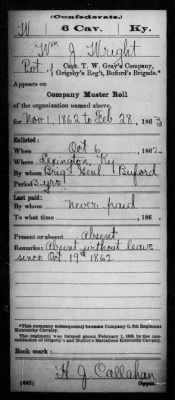 (Confederate.)
W 6 Cav. Ky.
Wm J Wright
Pvt, Capt. T. W. Gray's Company,
Grigsby's Reg't, Buford's Brigade.*
Appears on
Company Muster Roll
of the organization named above,
for Nov 1, 1862 to Feb 28, 1863
Enlisted:
When Oct 6, 1862
Where Lexington Ky
By whom Brig Genl Buford
Period 3 yrs
Last paid:
By whom never paid
To what time , 186 .
Present or absent Absent
Remarks: Absent without leave
since Oct 19th 1862
*This company subsequently became Company C, 6th Regiment
Kentucky Cavalry.
The regiment was formed about February 1, 1863, by the con-
solidation of Grigsby's and Butler's Battalions Kentucky Cavalry.
Book mark:
H J Callahan
(642) Copyist.